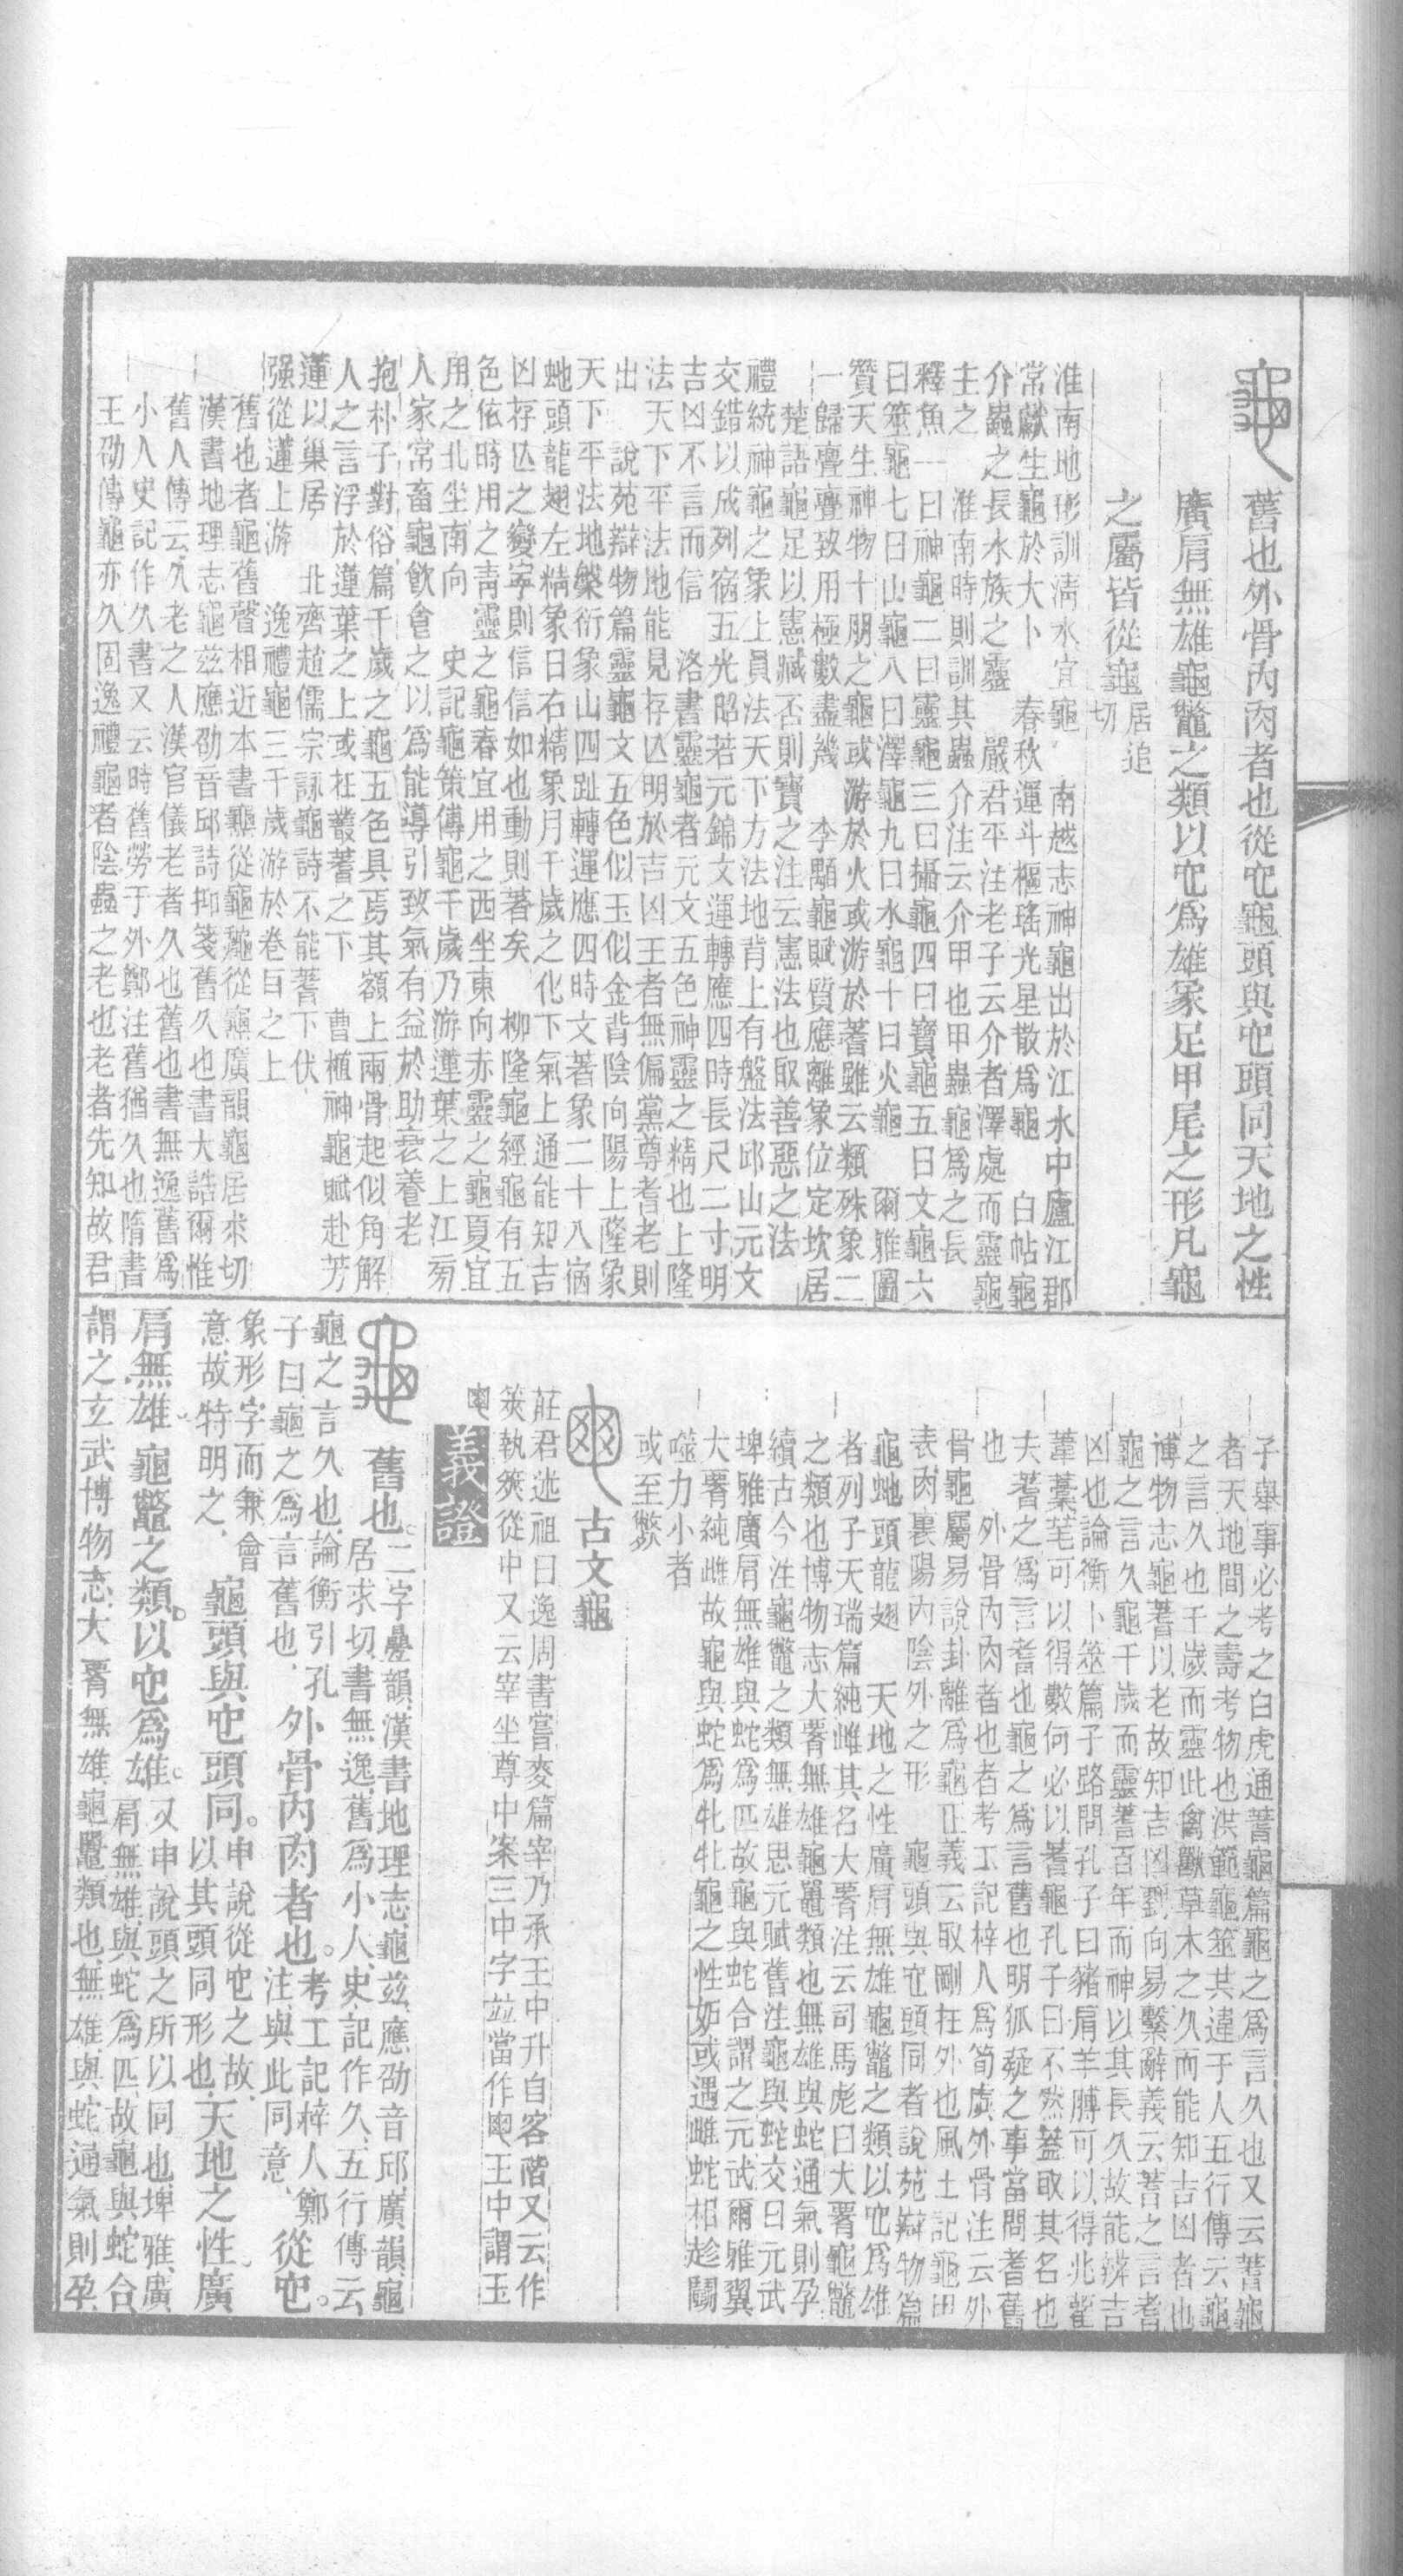 舊也外骨內肉者也從它龜頭與它頭同天地之性
廣肩無雄龜鼈之類以它爲雄象足甲尾之形凡龜
之屬皆從龜居追切
淮南地形訓淸水宜龜 南越志神龜出於江水中廬江郡
常獻生龜於大卜 春秋運斗樞瑤光星散爲龜 白帖龜
介蟲之長水族之靈 嚴君平注老子云介者澤處而靈龜
主之 淮南時則訓其蟲介注云介甲也甲蟲龜爲之長
釋魚一曰神龜二曰靈龜三曰攝龜四曰寶龜五曰文龜六
曰筮龜七曰山龜八曰澤龜九曰水龜十曰火龜 爾雅圖
贊天生神物十朋之龜或游於火或游於蓍雖云類殊象二
一歸亹亹致用極數盡幾 李顒龜賦質應離象位定坎居
楚語龜足以憲臧否則寶之注云憲法也取善惡之法
禮統神龜之象上員法天下方法地背上有盤法邱山元文
交錯以成列宿五光昭若元錦文運轉應四時長尺二寸明
吉凶不言而信 洛書靈龜者元文五色神靈之精也上隆
法天下平法地能見存亾明於吉凶王者無偏黨尊耆老則
出 說苑辯物篇靈龜文五色似玉似金背陰向陽上隆象
天下平法地槃衍象山四趾轉運應四時文著象二十八宿
虵頭龍翅左精象日右精象月千歲之化下氣上通能知吉
凶存亾之變寧則信信如也動則著矣 柳隆龜經龜有五
色依時用之靑靈之龜春宜用之西坐東向赤靈之龜夏宜
用之北坐南向 史記龜策傳龜千歲乃游蓮葉之上江旁
人家常畜龜飮食之以爲能導引致氣有益於助衰養老
抱朴子對俗篇千歲之龜五色具焉其額上兩骨起似角解
人之言浮於蓮葉之上或在叢蓍之下 曹植神龜賦赴芳
蓮以巢居 北齊趙儒宗詠龜詩不能蓍下伏
强從蓮上游 逸禮龜三千歲游於卷耳之上
舊也者龜舊聲相近本書從龜從廣韻龜居求切
漢書地理志龜茲應劭音邱詩抑箋舊久也書大誥爾惟
舊人傳云久老之人漢官儀老者久也舊也書無逸舊爲
小人史記作久書又云時舊勞于外鄭注舊猶久也隋書
王劭傳龜亦久固逸禮龜者陰蟲之老也老者先知故君
子舉事必考之白虎通蓍龜篇龜之爲言久也又云蓍龜
者天地間之壽考物也洪範龜筮其違于人五行傳云龜
之言久也千歲而靈此禽獸草木之久而能知吉凶者也
博物志龜蓍以老故知吉凶劉向易繫辭義云蓍之言耆
龜之言久龜千歲而靈蓍百年而神以其長久故能辨吉
凶也論衡卜筮篇子路問孔子曰豬肩羊膊可以得兆雚
葦藁芼可以得數何必以蓍龜孔子曰不然蓋取其名也
夫蓍之爲言耆也龜之爲言舊也明狐疑之事當問耆舊
也 外骨內肉者也者考工記梓人爲筍虡外骨注云外
骨龜屬易說卦離爲龜正義云取剛在外也風土記龜甲
表肉裏陽內陰外之形 龜頭與它頭同者說苑辯物篇
龜虵頭龍翅 天地之性廣肩無雄龜鼈之類以它爲雄
者列子天瑞篇純雌其名大䏿注云司馬彪曰大䏿龜鼈
之類也博物志大䏿無雄龜鼉類也無雄與蛇通氣則孕
續古今注龜鼈之類無雄思元賦舊注龜與蛇交曰元武
埤雅廣肩無雄與蛇爲匹故龜與蛇合謂之元武爾雅翼
大䏿純雌故龜與蛇爲牝牡龜之性妒或遇雌蛇相趁鬭
噬力小者
或至斃
古文龜
莊君述祖曰逸周書嘗麥篇宰乃承王中升自客階又云作
筴執筴從中又云宰坐尊中案三中字竝當作王中謂玉
義證
舊也。二字疊韻、漢書地理志、龜茲、應劭音邱、廣韻、龜
居求切、書無逸、舊爲小人、史記作久、五行傳云、
龜之言久也、論衡引孔
子曰、龜之爲言舊也、外骨內肉者也。考工記梓人鄭
注、與此同意、從它。
象形字而兼會
意、故特明之、龜頭與它頭同。申說從它之故、
以其頭同形也、天地之性。廣
肩無雄、龜鼈之類。以它爲雄。又申說頭之所以同也、埤雅、廣
肩無雄、與蛇爲匹、故龜與蛇合、
謂之玄武、博物志、大䏿無雄、龜鼉類也、無雄、與蛇通氣則孕、